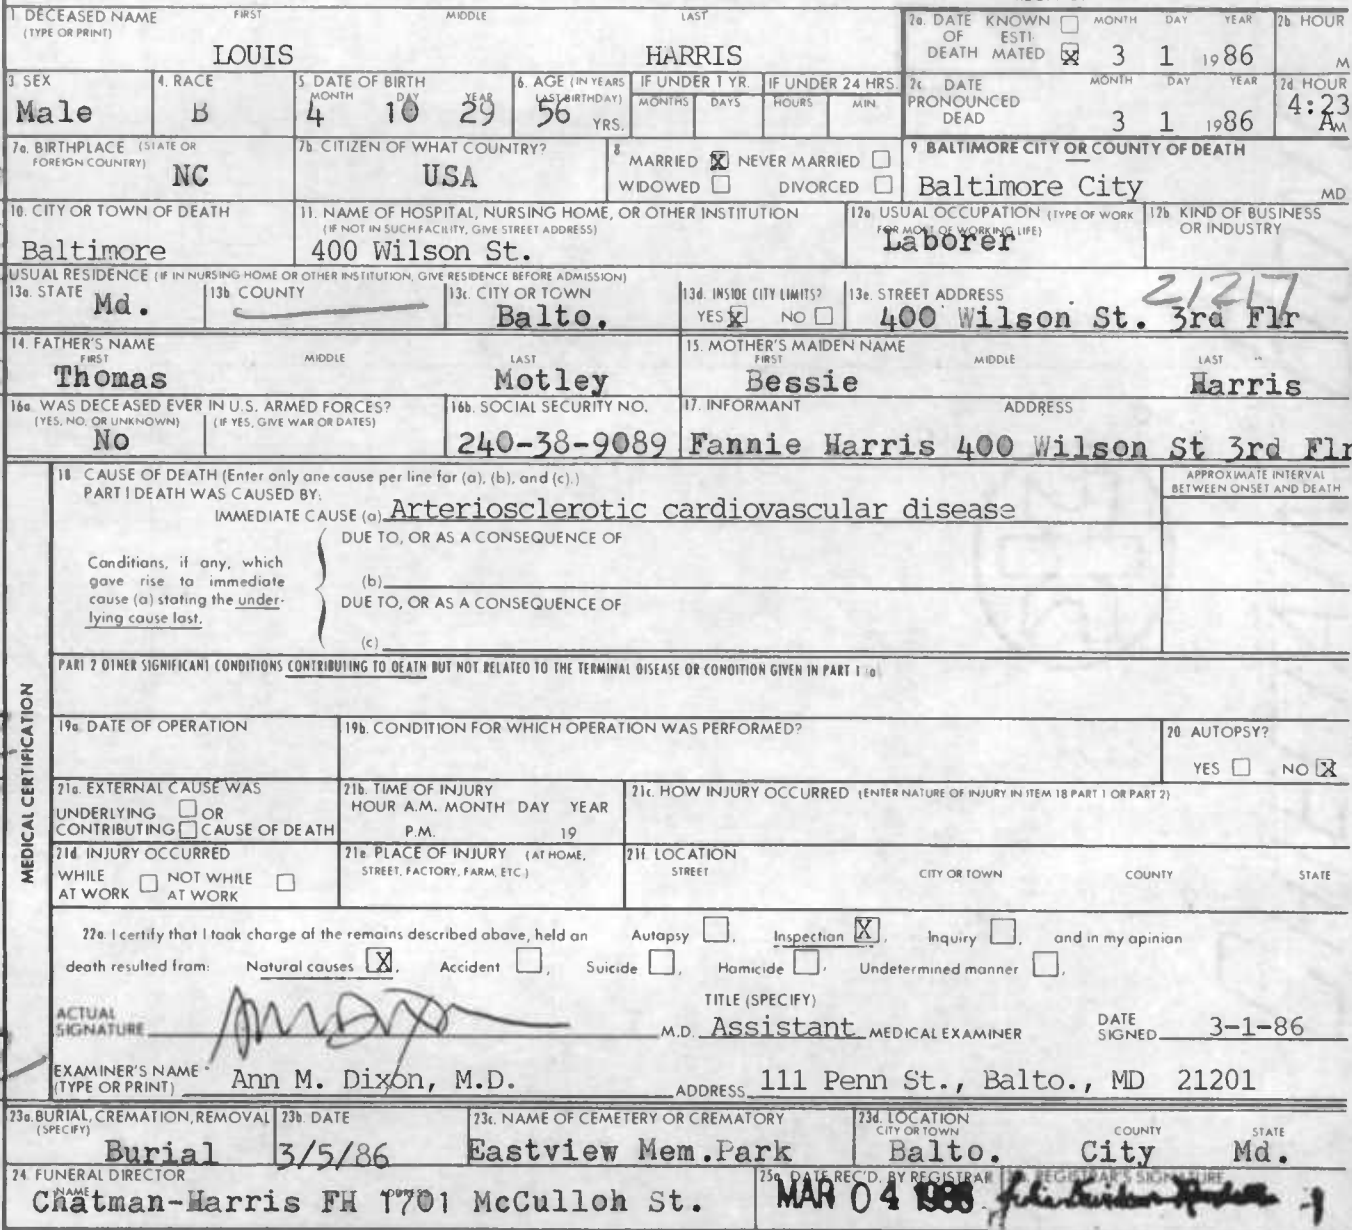 1 DECEASED NAME FIRST MIDDLE LAST
(TYPE OR PRINT)
LOUIS HARRIS
2a. DATE OF DEATH KNOWN ☐ ESTIMATED ☒ MONTH DAY YEAR
3 1 1986
2b HOUR
M
3 SEX
Male
4. RACE
B
5 DATE OF BIRTH
MONTH DAY YEAR
4 10 29
6. AGE (IN YEARS LAST BIRTHDAY)
56 YRS.
IF UNDER 1 YR.
MONTHS DAYS
IF UNDER 24 HRS.
HOURS MIN.
2c DATE PRONOUNCED DEAD MONTH DAY YEAR
3 1 1986
2d HOUR
4:23
AM
7a. BIRTHPLACE (STATE OR FOREIGN COUNTRY)
NC
7b. CITIZEN OF WHAT COUNTRY?
USA
8
MARRIED ☒ NEVER MARRIED ☐
WIDOWED ☐ DIVORCED ☐
9 BALTIMORE CITY OR COUNTY OF DEATH
Baltimore City MD
10. CITY OR TOWN OF DEATH
Baltimore
11. NAME OF HOSPITAL, NURSING HOME, OR OTHER INSTITUTION
(IF NOT IN SUCH FACILITY, GIVE STREET ADDRESS)
400 Wilson St.
12a USUAL OCCUPATION (TYPE OF WORK
FOR MOST OF WORKING LIFE)
Laborer
12b. KIND OF BUSINESS OR INDUSTRY
USUAL RESIDENCE (IF IN NURSING HOME OR OTHER INSTITUTION, GIVE RESIDENCE BEFORE ADMISSION)
13a. STATE
Md.
13b. COUNTY
13c. CITY OR TOWN
Balto.
13d. INSIDE CITY LIMITS?
YES ☒ NO ☐
13e. STREET ADDRESS
21217
400 Wilson St. 3rd Flr
14. FATHER'S NAME
FIRST MIDDLE LAST
Thomas Motley
15. MOTHER'S MAIDEN NAME
FIRST MIDDLE LAST
Bessie Harris
16a. WAS DECEASED EVER IN U.S. ARMED FORCES?
(YES, NO, OR UNKNOWN) (IF YES, GIVE WAR OR DATES)
No
16b. SOCIAL SECURITY NO.
240-38-9089
17. INFORMANT ADDRESS
Fannie Harris 400 Wilson St 3rd Flr
MEDICAL CERTIFICATION
18 CAUSE OF DEATH (Enter only one cause per line for (a), (b), and (c).)
PART I DEATH WAS CAUSED BY:
IMMEDIATE CAUSE (a) Arteriosclerotic cardiovascular disease
APPROXIMATE INTERVAL
BETWEEN ONSET AND DEATH
DUE TO, OR AS A CONSEQUENCE OF
Conditions, if any, which
gave rise to immediate
cause (a) stating the under-
lying cause last.
(b)
DUE TO, OR AS A CONSEQUENCE OF
(c)
PART 2 OTHER SIGNIFICANT CONDITIONS CONTRIBUTING TO DEATH BUT NOT RELATED TO THE TERMINAL DISEASE OR CONDITION GIVEN IN PART 1 (a)
19a. DATE OF OPERATION
19b. CONDITION FOR WHICH OPERATION WAS PERFORMED?
20. AUTOPSY?
YES ☐ NO ☒
21a. EXTERNAL CAUSE WAS
UNDERLYING ☐ OR
CONTRIBUTING ☐ CAUSE OF DEATH
21b. TIME OF INJURY
HOUR A.M. MONTH DAY YEAR
P.M. 19
21c. HOW INJURY OCCURRED (ENTER NATURE OF INJURY IN ITEM 18 PART 1 OR PART 2)
21d INJURY OCCURRED
WHILE AT WORK ☐ NOT WHILE AT WORK ☐
21e PLACE OF INJURY (AT HOME,
STREET, FACTORY, FARM, ETC.)
21f. LOCATION
STREET CITY OR TOWN COUNTY STATE
22a. I certify that I took charge of the remains described above, held an Autopsy ☐, Inspection ☒, Inquiry ☐, and in my opinion
death resulted from: Natural causes ☒, Accident ☐, Suicide ☐, Homicide ☐, Undetermined manner ☐,
ACTUAL SIGNATURE
TITLE (SPECIFY)
M.D. Assistant MEDICAL EXAMINER
DATE SIGNED 3-1-86
EXAMINER'S NAME (TYPE OR PRINT) Ann M. Dixon, M.D.
ADDRESS 111 Penn St., Balto., MD 21201
23a. BURIAL, CREMATION, REMOVAL
(SPECIFY)
Burial
23b. DATE
3/5/86
23c. NAME OF CEMETERY OR CREMATORY
Eastview Mem.Park
23d. LOCATION
CITY OR TOWN COUNTY STATE
Balto. City Md.
24. FUNERAL DIRECTOR
NAME
Chatman-Harris FH 1701 McCulloh St.
25a. DATE REC'D. BY REGISTRAR
MAR 04 1986
REGISTRAR'S SIGNATURE